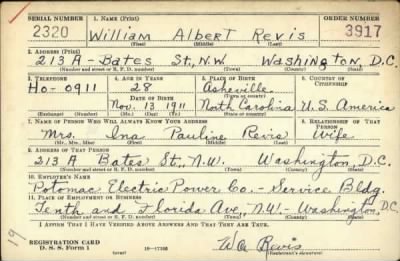 SERIAL NUMBER 1. NAME (Print) ORDER NUMBER
2320 William Albert Revis 3917
(First) (Middle) (Last)
2. ADDRESS (Print)
213 A - Bates St., N.W. Washington, D.C.
(Number and street or R. F. D. number) (Town) (County) (State)
3. TELEPHONE 4. AGE IN YEARS 5. PLACE OF BIRTH 6. COUNTRY OF CITIZENSHIP
Ho-0911 28 Asheville
DATE OF BIRTH (Town or county)
Nov. 13 1911 North Carolina U.S. America
(Exchange) (Number) (Mo.) (Day) (Yr.) (State or country)
7. NAME OF PERSON WHO WILL ALWAYS KNOW YOUR ADDRESS 8. RELATIONSHIP OF THAT PERSON
Mrs. Ina Pauline Revis Wife
(Mr., Mrs., Miss) (First) (Middle) (Last)
9. ADDRESS OF THAT PERSON
213 A Bates St., N.W. Washington, D.C.
(Number and street or R. F. D. number) (Town) (County) (State)
10. EMPLOYER'S NAME
Potomac Electric Power Co. - Service Bldg.
11. PLACE OF EMPLOYMENT OR BUSINESS
Tenth and Florida Ave., N.W. - Washington, D.C.
(Number and street or R. F. D. number) (Town) (County) (State)
I AFFIRM THAT I HAVE VERIFIED ABOVE ANSWERS AND THAT THEY ARE TRUE.
19
REGISTRATION CARD
D. S. S. Form 1 (over)
Revis
(Registrant's signature)